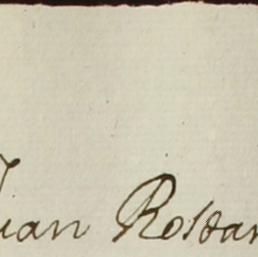 Juan Rostan